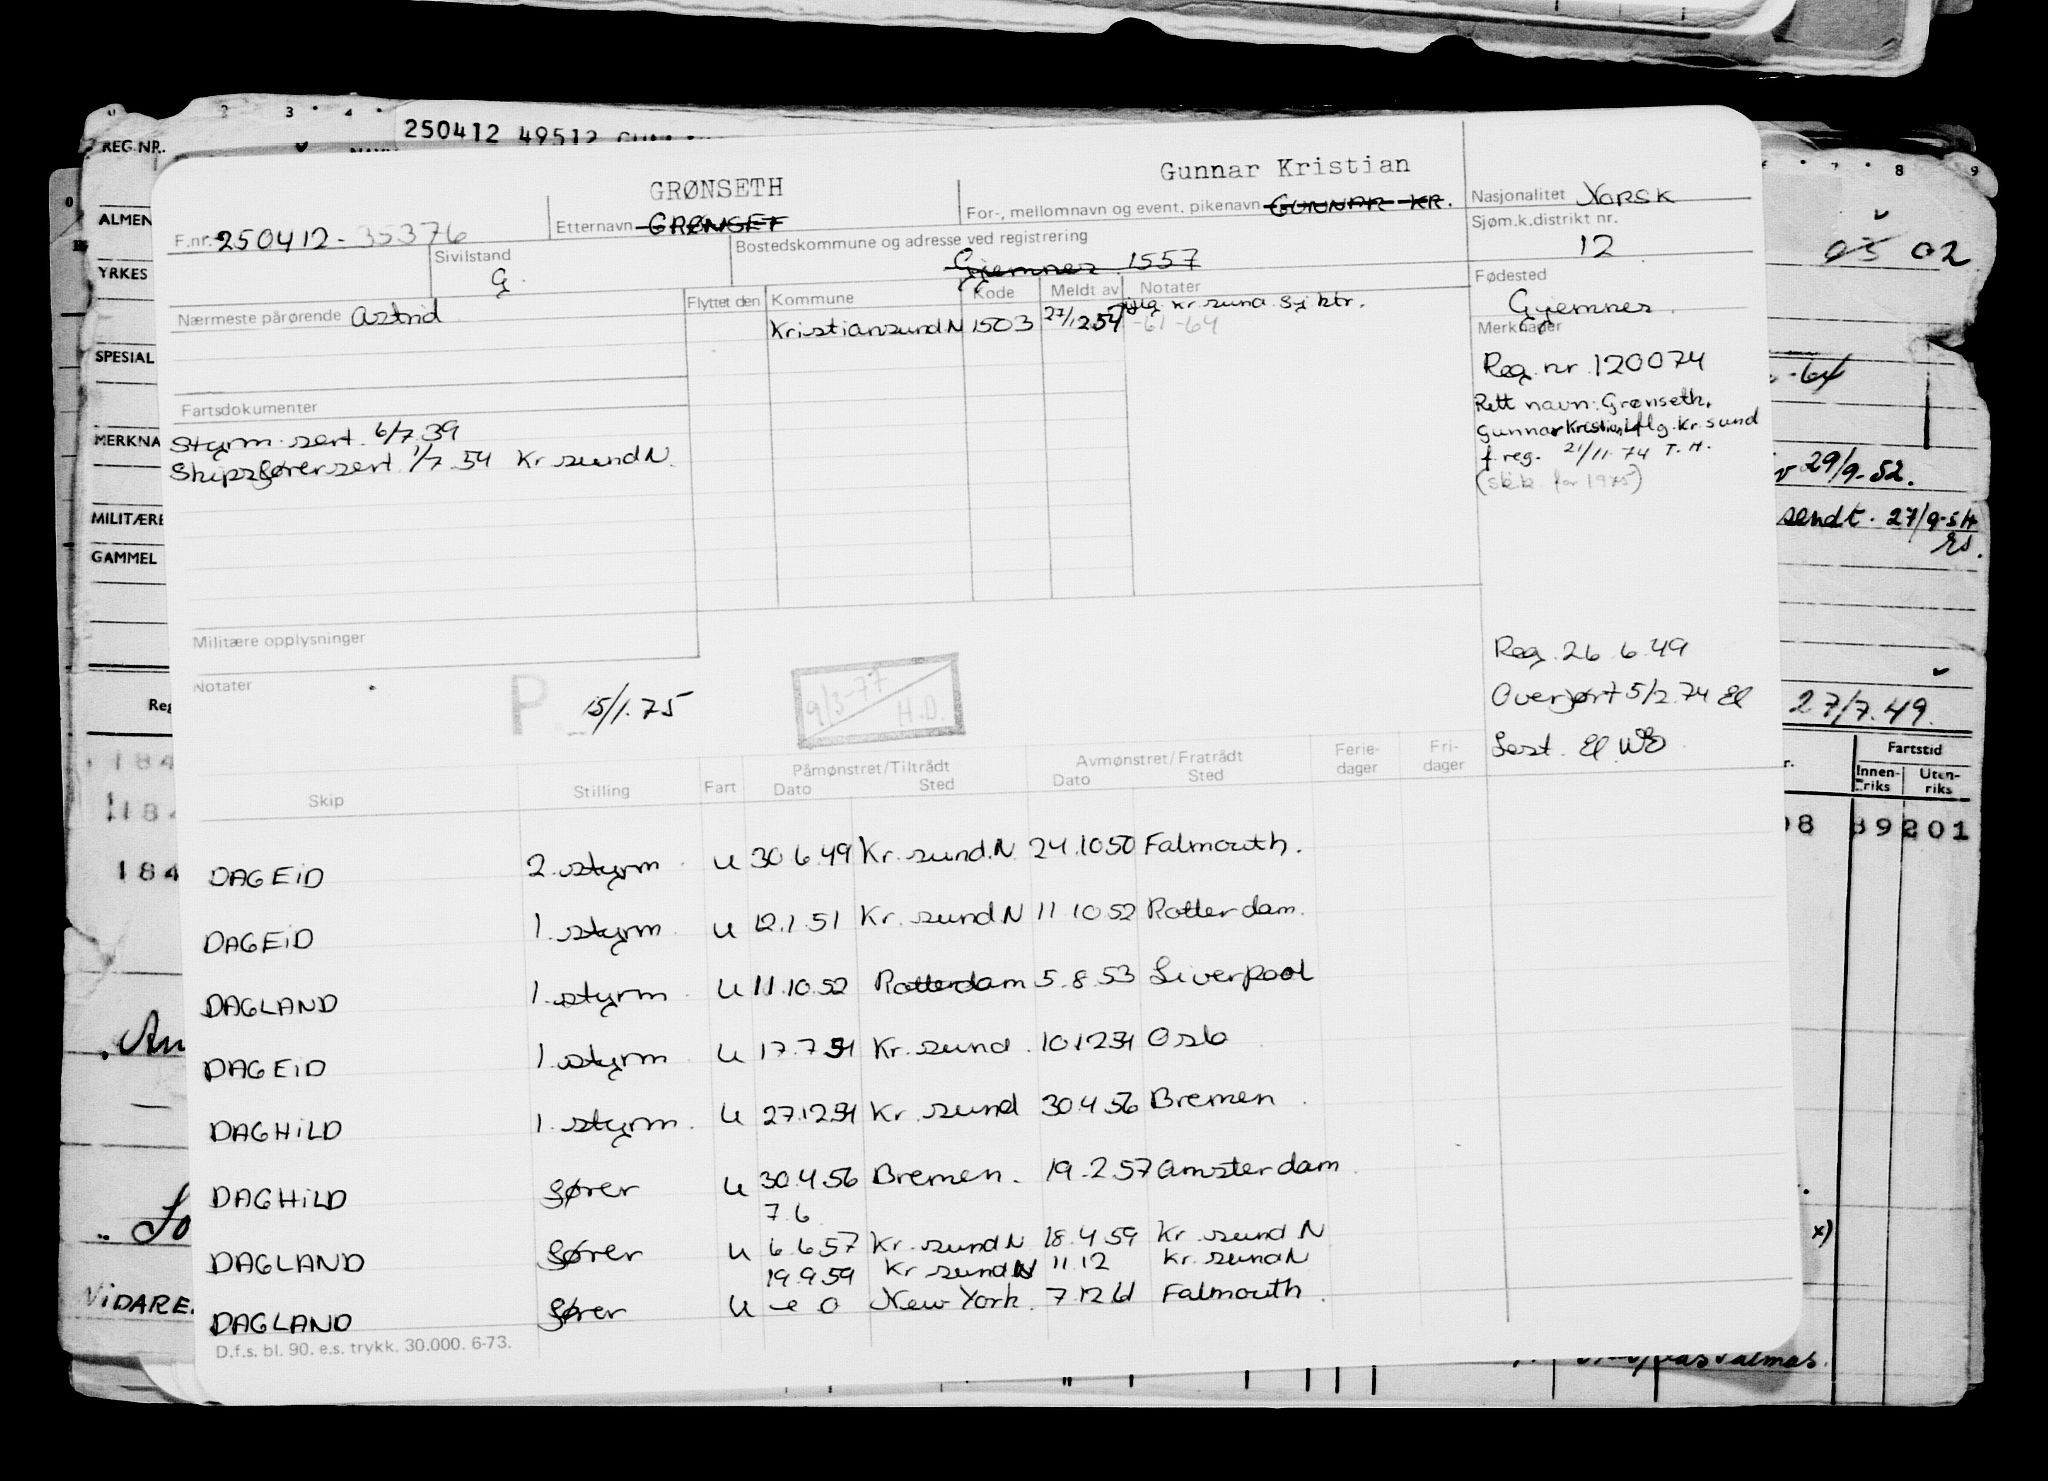 250412 49512
REG.NR.
ALMEN
YRKES
SPESIAL
MERKNA
MILITÆRE
GAMMEL
GRØNSETH
Gunnar Kristian
F.nr. 250412-35376
Etternavn GRØNSET
For-, mellomnavn og event. pikenavn GUNNAR KR.
Nasjonalitet NORSK
Sivilstand
G.
Bostedskommune og adresse ved registrering
Gjemnes 1557
Sjøm.k.distrikt nr.
12
Nærmeste pårørende Astrid
Flyttet den Kommune Kode Meldt av Notater
Kristiansund N 1503 27/12.54 iflg. Kr.sund. Sj.ktr.
-61-64
Fødested
Gjemnes
Merknader
Reg. nr. 120074
Rett navn: Grønseth,
Gunnar Kristian iflg. Kr.sund
f.reg. 21/11.74 T.H.
(s.k.k. for 1975)
Fartsdokumenter
Styrm. sert. 6/7.39
Skipsførersert. 1/7.54 Kr.sund N.
Militære opplysninger
Notater
P. 15/1.75
9/3-77 H.D.
Reg. 26.6.49
Overført 5/2.74 El
Lest. El. WØ
Skip Stilling Fart Påmønstret/Tiltrådt Avmønstret/Fratrådt Ferie- dager Fri- dager
Dato Sted Dato Sted
DAGEID 2. styrm. U 30.6.49 Kr.sund.N. 24.10.50 Falmouth.
DAGEID 1. styrm. U 12.1.51 Kr.sund N 11.10.52 Rotterdam.
DAGLAND 1. styrm. U 11.10.52 Rotterdam 5.8.53 Liverpool
DAGEID 1. styrm U 17.7.54 Kr.sund. 10.12.54 Oslo
DAGHILD 1. styrm. U 27.12.54 Kr.sund 30.4.56 Bremen.
DAGHILD fører U 30.4.56 Bremen. 19.2.57 Amsterdam.
7.6
DAGLAND fører U 6.6.57 Kr.sund N 18.4.59 Kr.sund N
19.9.59 Kr.sund N 11.12 Kr.sund N
DAGLAND fører U New York. 7.12.61 Falmouth.
D.f.s. bl. 90. e.s. trykk. 30.000. 6-73.
05 02
-64
29/9-52.
sendt. 27/9-54
27/7.49.
Fartstid
Innen- riks Uten- riks
89 201
x)
184
184
184
NIDARE.